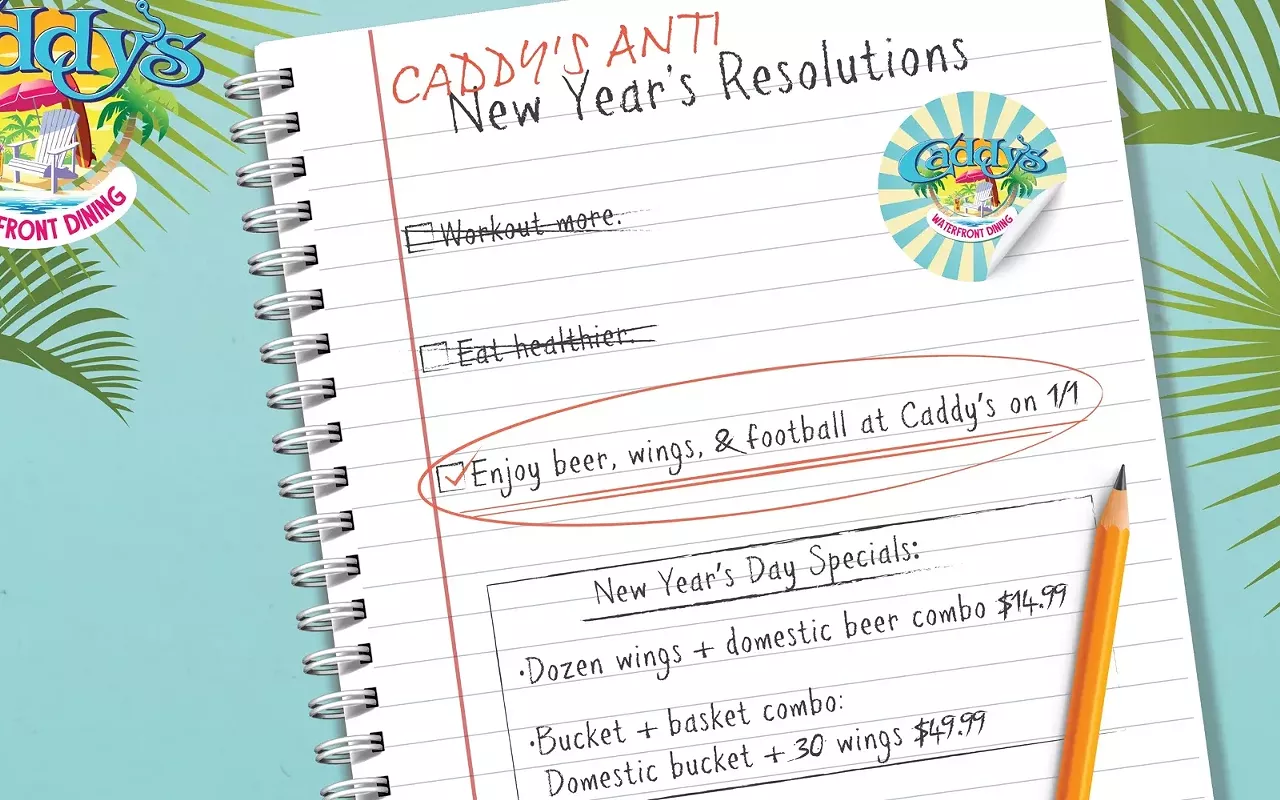 CADDY'S ANTI
New Year's Resolutions
ddy's
FRONT DINING
Caddy's
WATERFRONT DINING
Workout more.
Eat healthier.
Enjoy beer, wings, & football at Caddy's on 1/1
New Year's Day Specials:
·Dozen wings + domestic beer combo $14.99
·Bucket + basket combo:
Domestic bucket + 30 wings $49.99